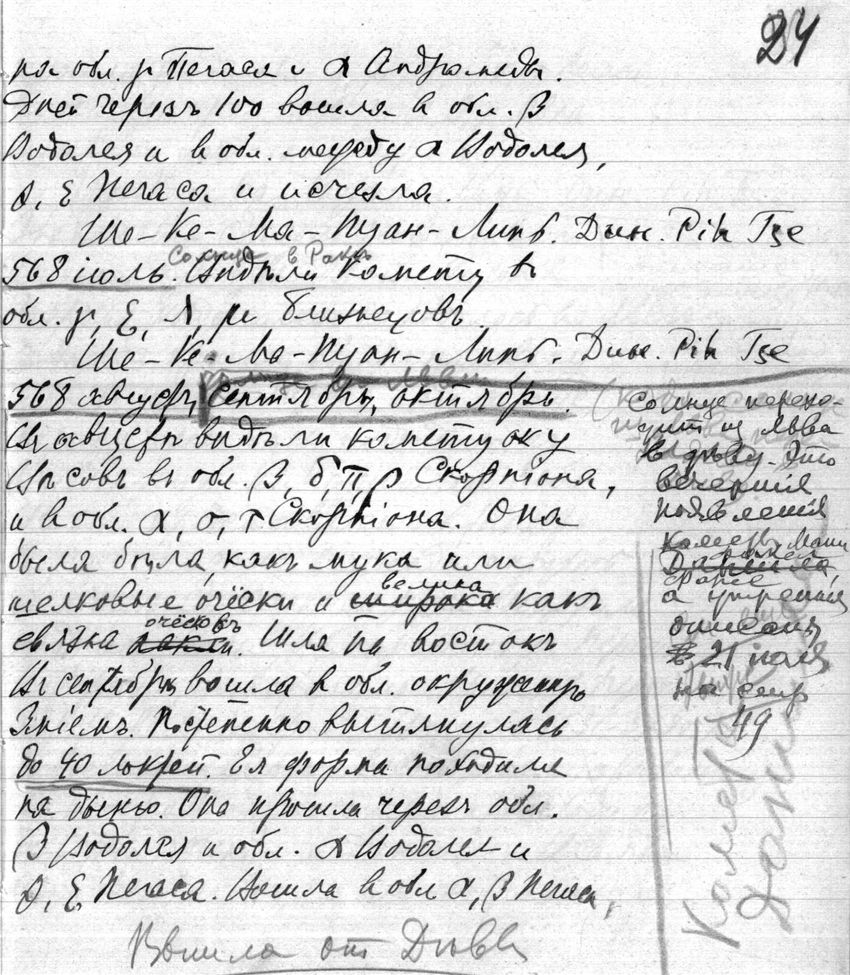 24
на обл. γ Пегаса и α Андромеды.
Дней черезъ 100 вошла в обл. β
Водолея и в обл. между α Водолея,
θ, ε Пегаса и исчезла.
Ше-Ке-Ма-Нуан-Линъ. Дин.
568 июль. Солнце в Ракъ
Видѣли комету въ
обл. γ, ε, λ, μ Близнецовъ
Ше-Ке-Ма-Нуан-Линъ. Дин.
568 августъ, сентябрь, октябрь.
Въ августѣ видѣли комету оку
въ обл. β, δ, π, ρ Скорпіона,
и в обл. α, σ, τ Скорпіона. Она
была бѣла, какъ мука или
шелковые очёски и широка велика какъ
связка оческовъ. Шла на востокъ
Въ сентябрѣ вошла в обл. окруженную
Зміемъ. Постепенно вытянулась
до 40 локтей. Ея форма походила
на дыню. Она прошла черезъ обл.
β Водолея и обл. α Водолея и
θ, ε, Пегаса. Вошла в обл α, β Пегаса,
Вышла от Дѣвы
Солнце перехо-
дит из Льва
в Дѣву. Это
вечернія
появленія
кометы
ранее
а утреннія
описаны
21 іюля
на стр
49
Комета